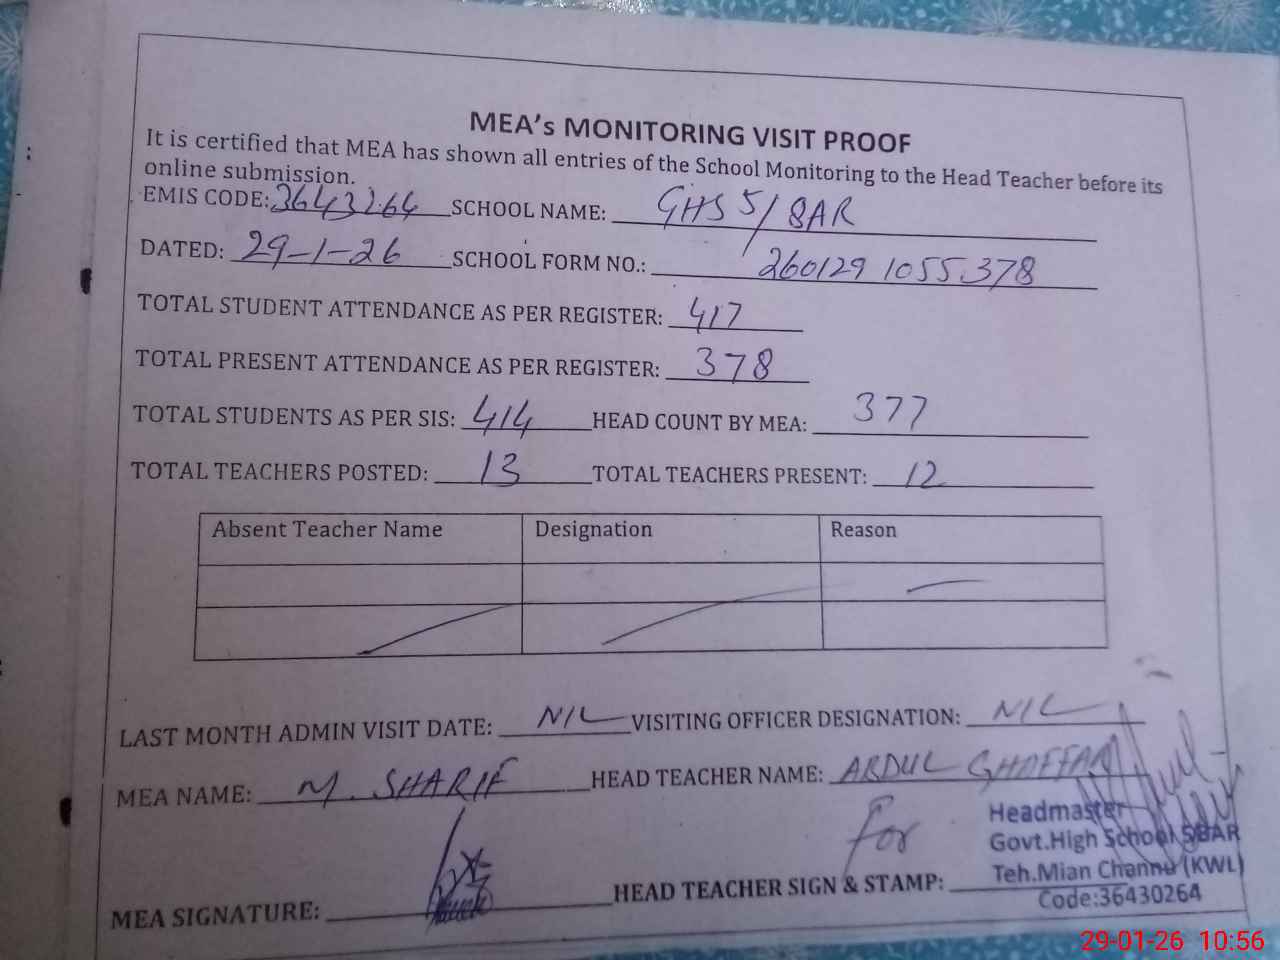 MEA's MONITORING VISIT PROOF
It is certified that MEA has shown all entries of the School Monitoring to the Head Teacher before its
online submission.
EMIS CODE: 3643264 SCHOOL NAME: GHS 5/8AR
DATED: 29-1-26 SCHOOL FORM NO.: 260129 1055 378
TOTAL STUDENT ATTENDANCE AS PER REGISTER: 417
TOTAL PRESENT ATTENDANCE AS PER REGISTER: 378
TOTAL STUDENTS AS PER SIS: 414 HEAD COUNT BY MEA: 377
TOTAL TEACHERS POSTED: 13 TOTAL TEACHERS PRESENT: 12
Absent Teacher Name Designation Reason
LAST MONTH ADMIN VISIT DATE: NIL VISITING OFFICER DESIGNATION: NIL
MEA NAME: M. SHARIF HEAD TEACHER NAME: ABDUL GHAFFAR
For
Headmaster
Govt.High School 58AR
Teh.Mian Channu (KWL)
Code:36430264
MEA SIGNATURE: HEAD TEACHER SIGN & STAMP:
29-01-26 10:56